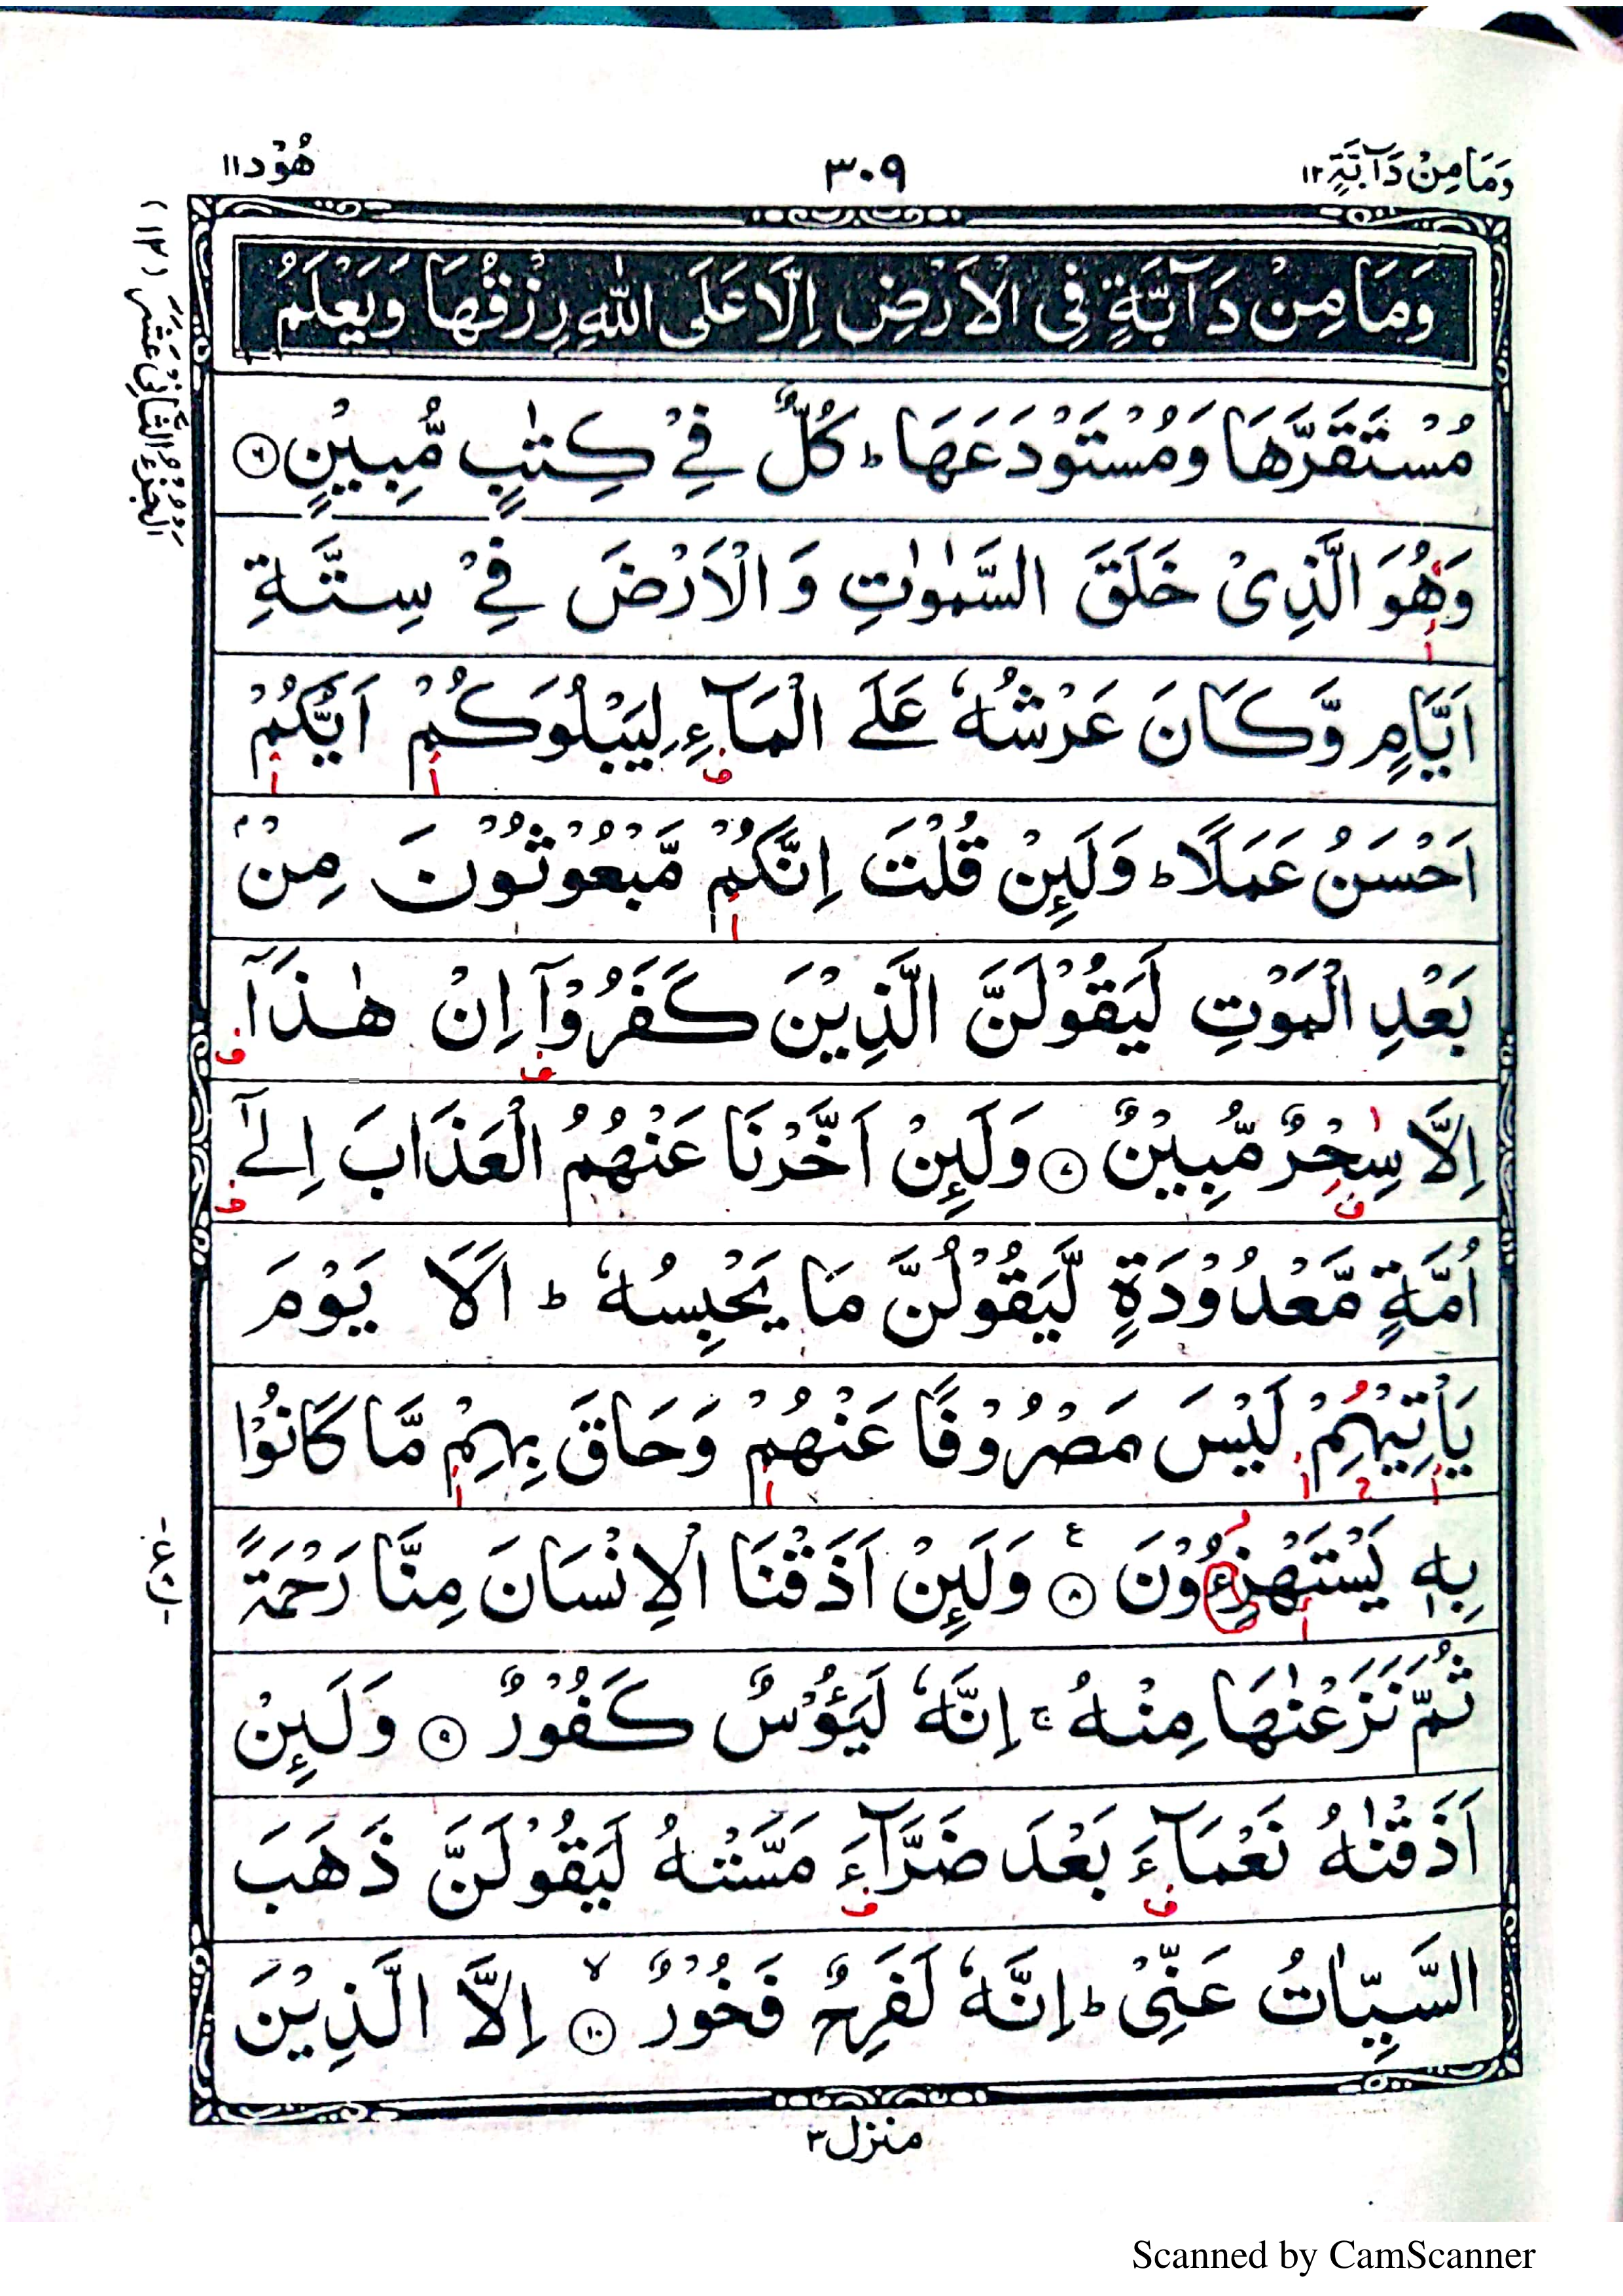 وَمَا مِنْ دَآبَّةٍ ١٢
٣٠٩
هُوْد ١١
وَمَا مِنْ دَآبَّةٍ فِى الْاَرْضِ اِلَّا عَلَى اللّٰهِ رِزْقُهَا وَيَعْلَمُ
مُسْتَقَرَّهَا وَمُسْتَوْدَعَهَا ؕ كُلٌّ فِيْ كِتٰبٍ مُّبِيْنٍ ۝٦
وَهُوَ الَّذِىْ خَلَقَ السَّمٰوٰتِ وَ الْاَرْضَ فِيْ سِتَّةِ
اَيَّامٍ وَّكَانَ عَرْشُهٗ عَلَے الْمَآءِ لِيَبْلُوَكُمْ اَيُّكُمْ
اَحْسَنُ عَمَلًا ؕ وَلَئِنْ قُلْتَ اِنَّكُمْ مَّبْعُوْثُوْنَ مِنْۢ
بَعْدِ الْمَوْتِ لَيَقُوْلَنَّ الَّذِيْنَ كَفَرُوْٓا اِنْ هٰذَآ
اِلَّا سِحْرٌ مُّبِيْنٌ ۝٧ وَلَئِنْ اَخَّرْنَا عَنْهُمُ الْعَذَابَ اِلٰٓے
اُمَّةٍ مَّعْدُوْدَةٍ لَّيَقُوْلُنَّ مَا يَحْبِسُهٗ ؕ اَلَا يَوْمَ
يَاْتِيْهِمْ لَيْسَ مَصْرُوْفًا عَنْهُمْ وَحَاقَ بِهِمْ مَّا كَانُوْا
بِهٖ يَسْتَهْزِءُوْنَ ۝٨ ع وَلَئِنْ اَذَقْنَا الْاِنْسَانَ مِنَّا رَحْمَةً
ثُمَّ نَزَعْنٰهَا مِنْهُ ۚ اِنَّهٗ لَيَـُٔوْسٌ كَفُوْرٌ ۝٩ وَلَئِنْ
اَذَقْنٰهُ نَعْمَآءَ بَعْدَ ضَرَّآءَ مَسَّتْهُ لَيَقُوْلَنَّ ذَهَبَ
السَّيِّاٰتُ عَنِّىْ ؕ اِنَّهٗ لَفَرِحٌ فَخُوْرٌ ۝١٠ ۙ اِلَّا الَّذِيْنَ
منزل ٣
اَلْجُزْءُ الثَّانِيْ عَشَرَ (١٢)
Scanned by CamScanner